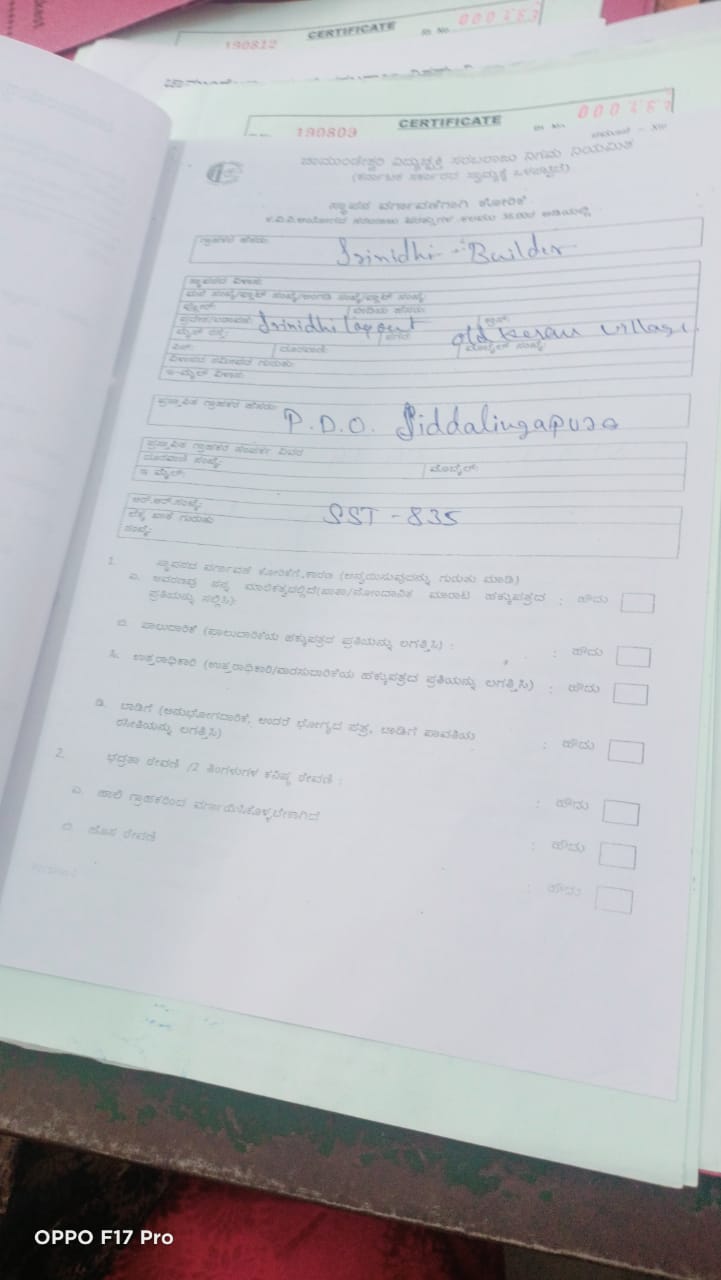 CERTIFICATE
190812
000453
CERTIFICATE
190809
ಚಾಮುಂಡೇಶ್ವರಿ ವಿದ್ಯುಚ್ಛಕ್ತಿ ಸರಬರಾಜು ನಿಗಮ ನಿಯಮಿತ
(ಕರ್ನಾಟಕ ಸರ್ಕಾರದ ಸ್ವಾಮ್ಯಕ್ಕೆ ಒಳಪಟ್ಟಿದೆ)
ಸ್ಥಾವರ ವರ್ಗಾವಣೆಗಾಗಿ ಕೋರಿಕೆ
ಗ್ರಾಹಕರ ಹೆಸರು: Srinidhi - Builder
ಸ್ಥಾವರದ ವಿಳಾಸ:
Srinidhi layout old Kesare village
ದೂರವಾಣಿ: ಮೊಬೈಲ್ ಸಂಖ್ಯೆ:
ವಿಳಾಸದ ಸಮೀಪದ ಗುರುತು:
ಇ-ಮೈಲ್ ವಿಳಾಸ:
ಪ್ರಸ್ತಾವಿತ ಗ್ರಾಹಕರ ಹೆಸರು: P.D.O. Siddalingapura
ಪ್ರಸ್ತಾವಿತ ಗ್ರಾಹಕರ ಸಂಪರ್ಕ ವಿವರ
ದೂರವಾಣಿ ಸಂಖ್ಯೆ: ಮೊಬೈಲ್:
ಇ ಮೈಲ್:
ಆರ್.ಆರ್.ಸಂಖ್ಯೆ:
ಲೆಕ್ಕ ಖಾತೆ ಗುರುತು SST - 835
ಸಂಖ್ಯೆ:
1. ಸ್ಥಾವರದ ವರ್ಗಾವಣೆ ಕೋರಿಕೆಗೆ ಕಾರಣ (ಅನ್ವಯಿಸುವುದನ್ನು ಗುರುತು ಮಾಡಿ)
ಎ. ಆವರಣವು ನನ್ನ ಮಾಲಿಕತ್ವದಲ್ಲಿದೆ(ಖಾತಾ/ನೋಂದಾವಿತ ಮಾರಾಟ ಹಕ್ಕುಪತ್ರದ : ಹೌದು
ಪ್ರತಿಯನ್ನು ಸಲ್ಲಿಸಿ):
ಬಿ. ಪಾಲುದಾರಿಕೆ (ಪಾಲುದಾರಿಕೆಯ ಹಕ್ಕುಪತ್ರದ ಪ್ರತಿಯನ್ನು ಲಗತ್ತಿಸಿ) : : ಹೌದು
ಸಿ. ಉತ್ತರಾಧಿಕಾರಿ (ಉತ್ತರಾಧಿಕಾರಿ/ವಾರಸುದಾರಿಕೆಯ ಹಕ್ಕುಪತ್ರದ ಪ್ರತಿಯನ್ನು ಲಗತ್ತಿಸಿ) : ಹೌದು
ಡಿ. ಬಾಡಿಗೆ (ಅನುಭೋಗದಾರಿಕೆ, ಅಂದರೆ ಭೋಗ್ಯದ ಪತ್ರ, ಬಾಡಿಗೆ ಪಾವತಿಯ : ಹೌದು
ರಸೀತಿಯನ್ನು ಲಗತ್ತಿಸಿ)
2. ಭದ್ರತಾ ಠೇವಣಿ /2 ತಿಂಗಳುಗಳ ಕನಿಷ್ಠ ಠೇವಣಿ :
ಎ. ಹಾಲಿ ಗ್ರಾಹಕರಿಂದ ವರ್ಗಾಯಿಸಿಕೊಳ್ಳಬೇಕಾಗಿದೆ : ಹೌದು
ಬಿ. ಹೊಸ ಠೇವಣಿ : ಹೌದು
: ಹೌದು
OPPO F17 Pro